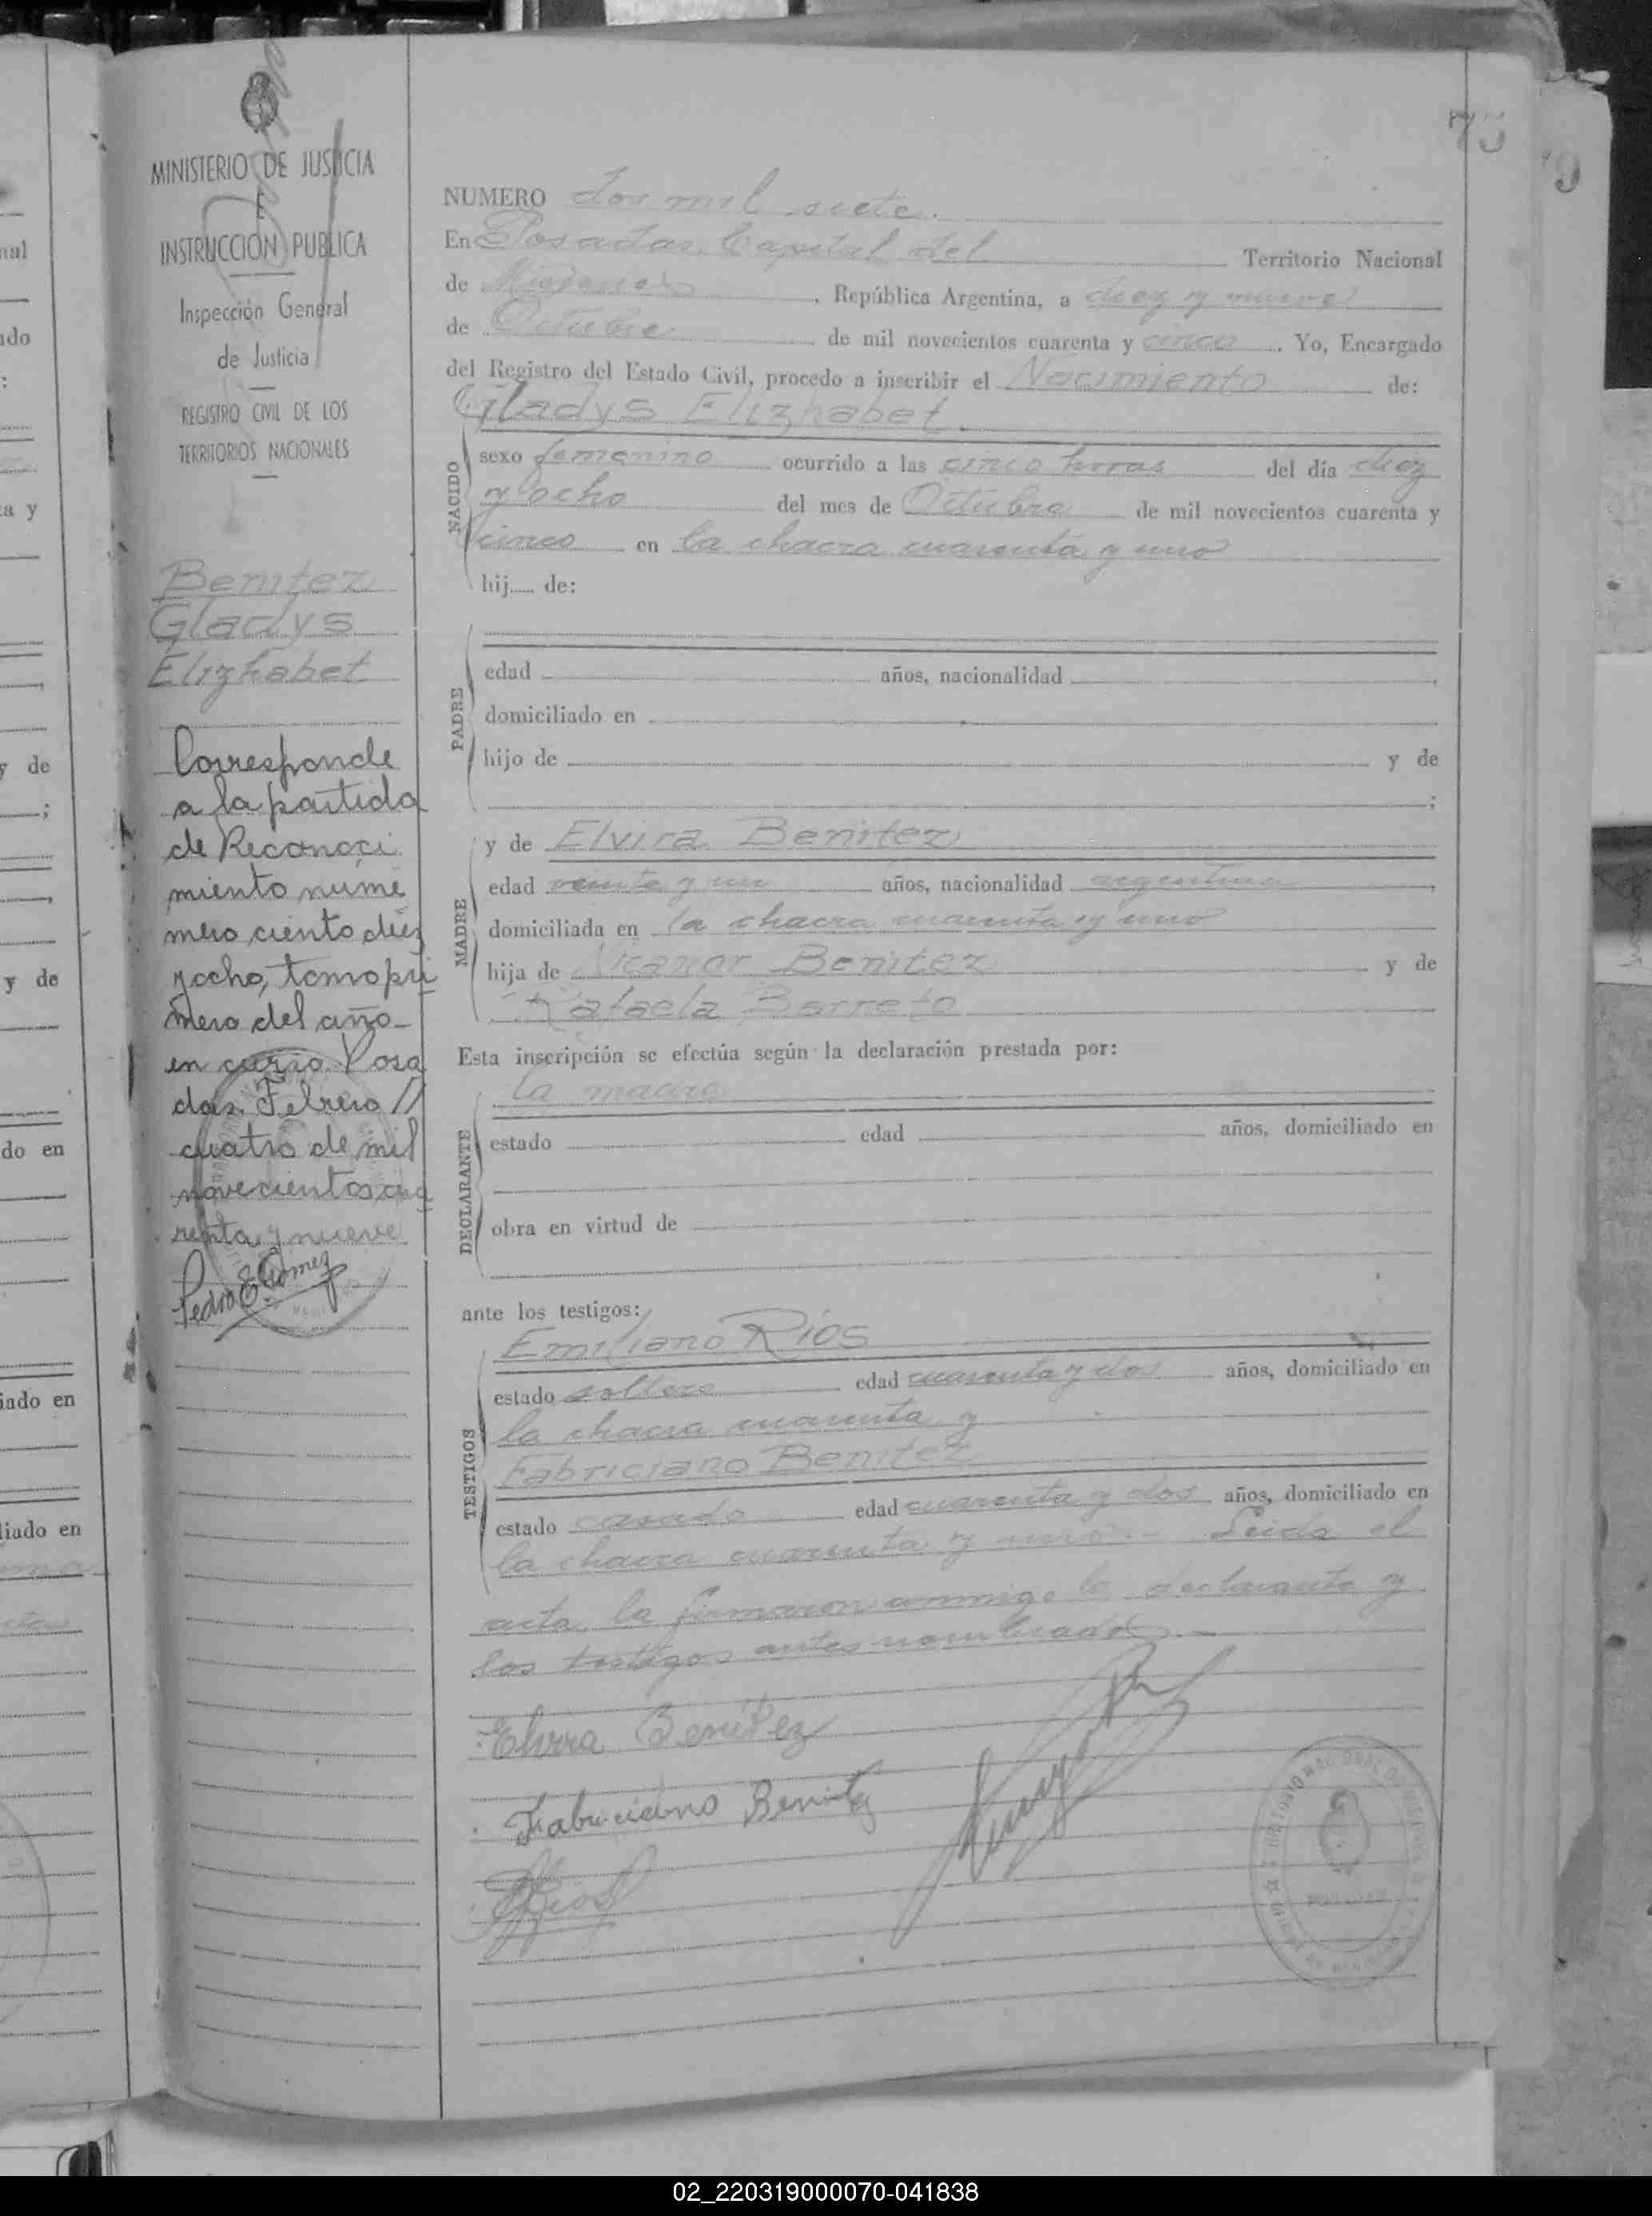 MINISTERIO DE JUSTICIA
E
INSTRUCCION PUBLICA
Inspección General
de Justicia
REGISTRO CIVIL DE LOS
TERRITORIOS NACIONALES
Benitez
Gladys
Elizhabet
Corresponde
a la partida
de Reconoci
miento núme
mero ciento diez
y ocho, tomo pri
mero del año
en curso. Posa
das. Febrero //
cuatro de mil
novecientos cua
renta y nueve
Pedro E. Gomez
75
NUMERO dos mil siete.
En Posadas Capital del Territorio Nacional
de Misiones, República Argentina, a diez y nueve
de Octubre de mil novecientos cuarenta y cinco. Yo, Encargado
del Registro del Estado Civil, procedo a inscribir el Nacimiento de:
Gladys Elizhabet.
NACIDO
sexo femenino ocurrido a las cinco horas del día diez
y ocho del mes de Octubre de mil novecientos cuarenta y
cinco en la chacra cuarenta y uno
hij.... de:
PADRE
edad años, nacionalidad
domiciliado en
hijo de y de
;
MADRE
y de Elvira Benitez
edad veinte y un años, nacionalidad argentina
domiciliada en la chacra cuarenta y uno
hija de Nicanor Benitez y de
Rafaela Barreto
Esta inscripción se efectúa según la declaración prestada por:
DECLARANTE
la madre
estado edad años, domiciliado en
obra en virtud de
ante los testigos:
TESTIGOS
Emiliano Rios
estado soltero edad cuarenta y dos años, domiciliado en
la chacra cuarenta y
Fabriciano Benitez
estado casado edad cuarenta y dos años, domiciliado en
la chacra cuarenta y uno.- Leida el
acta, la firmaron conmigo la declarante y
los testigos antes nombrados.-
Elvira Benitez
Fabriciano Benitez
ERios
y de
do en
iado en
liado en
02_220319000070-041838